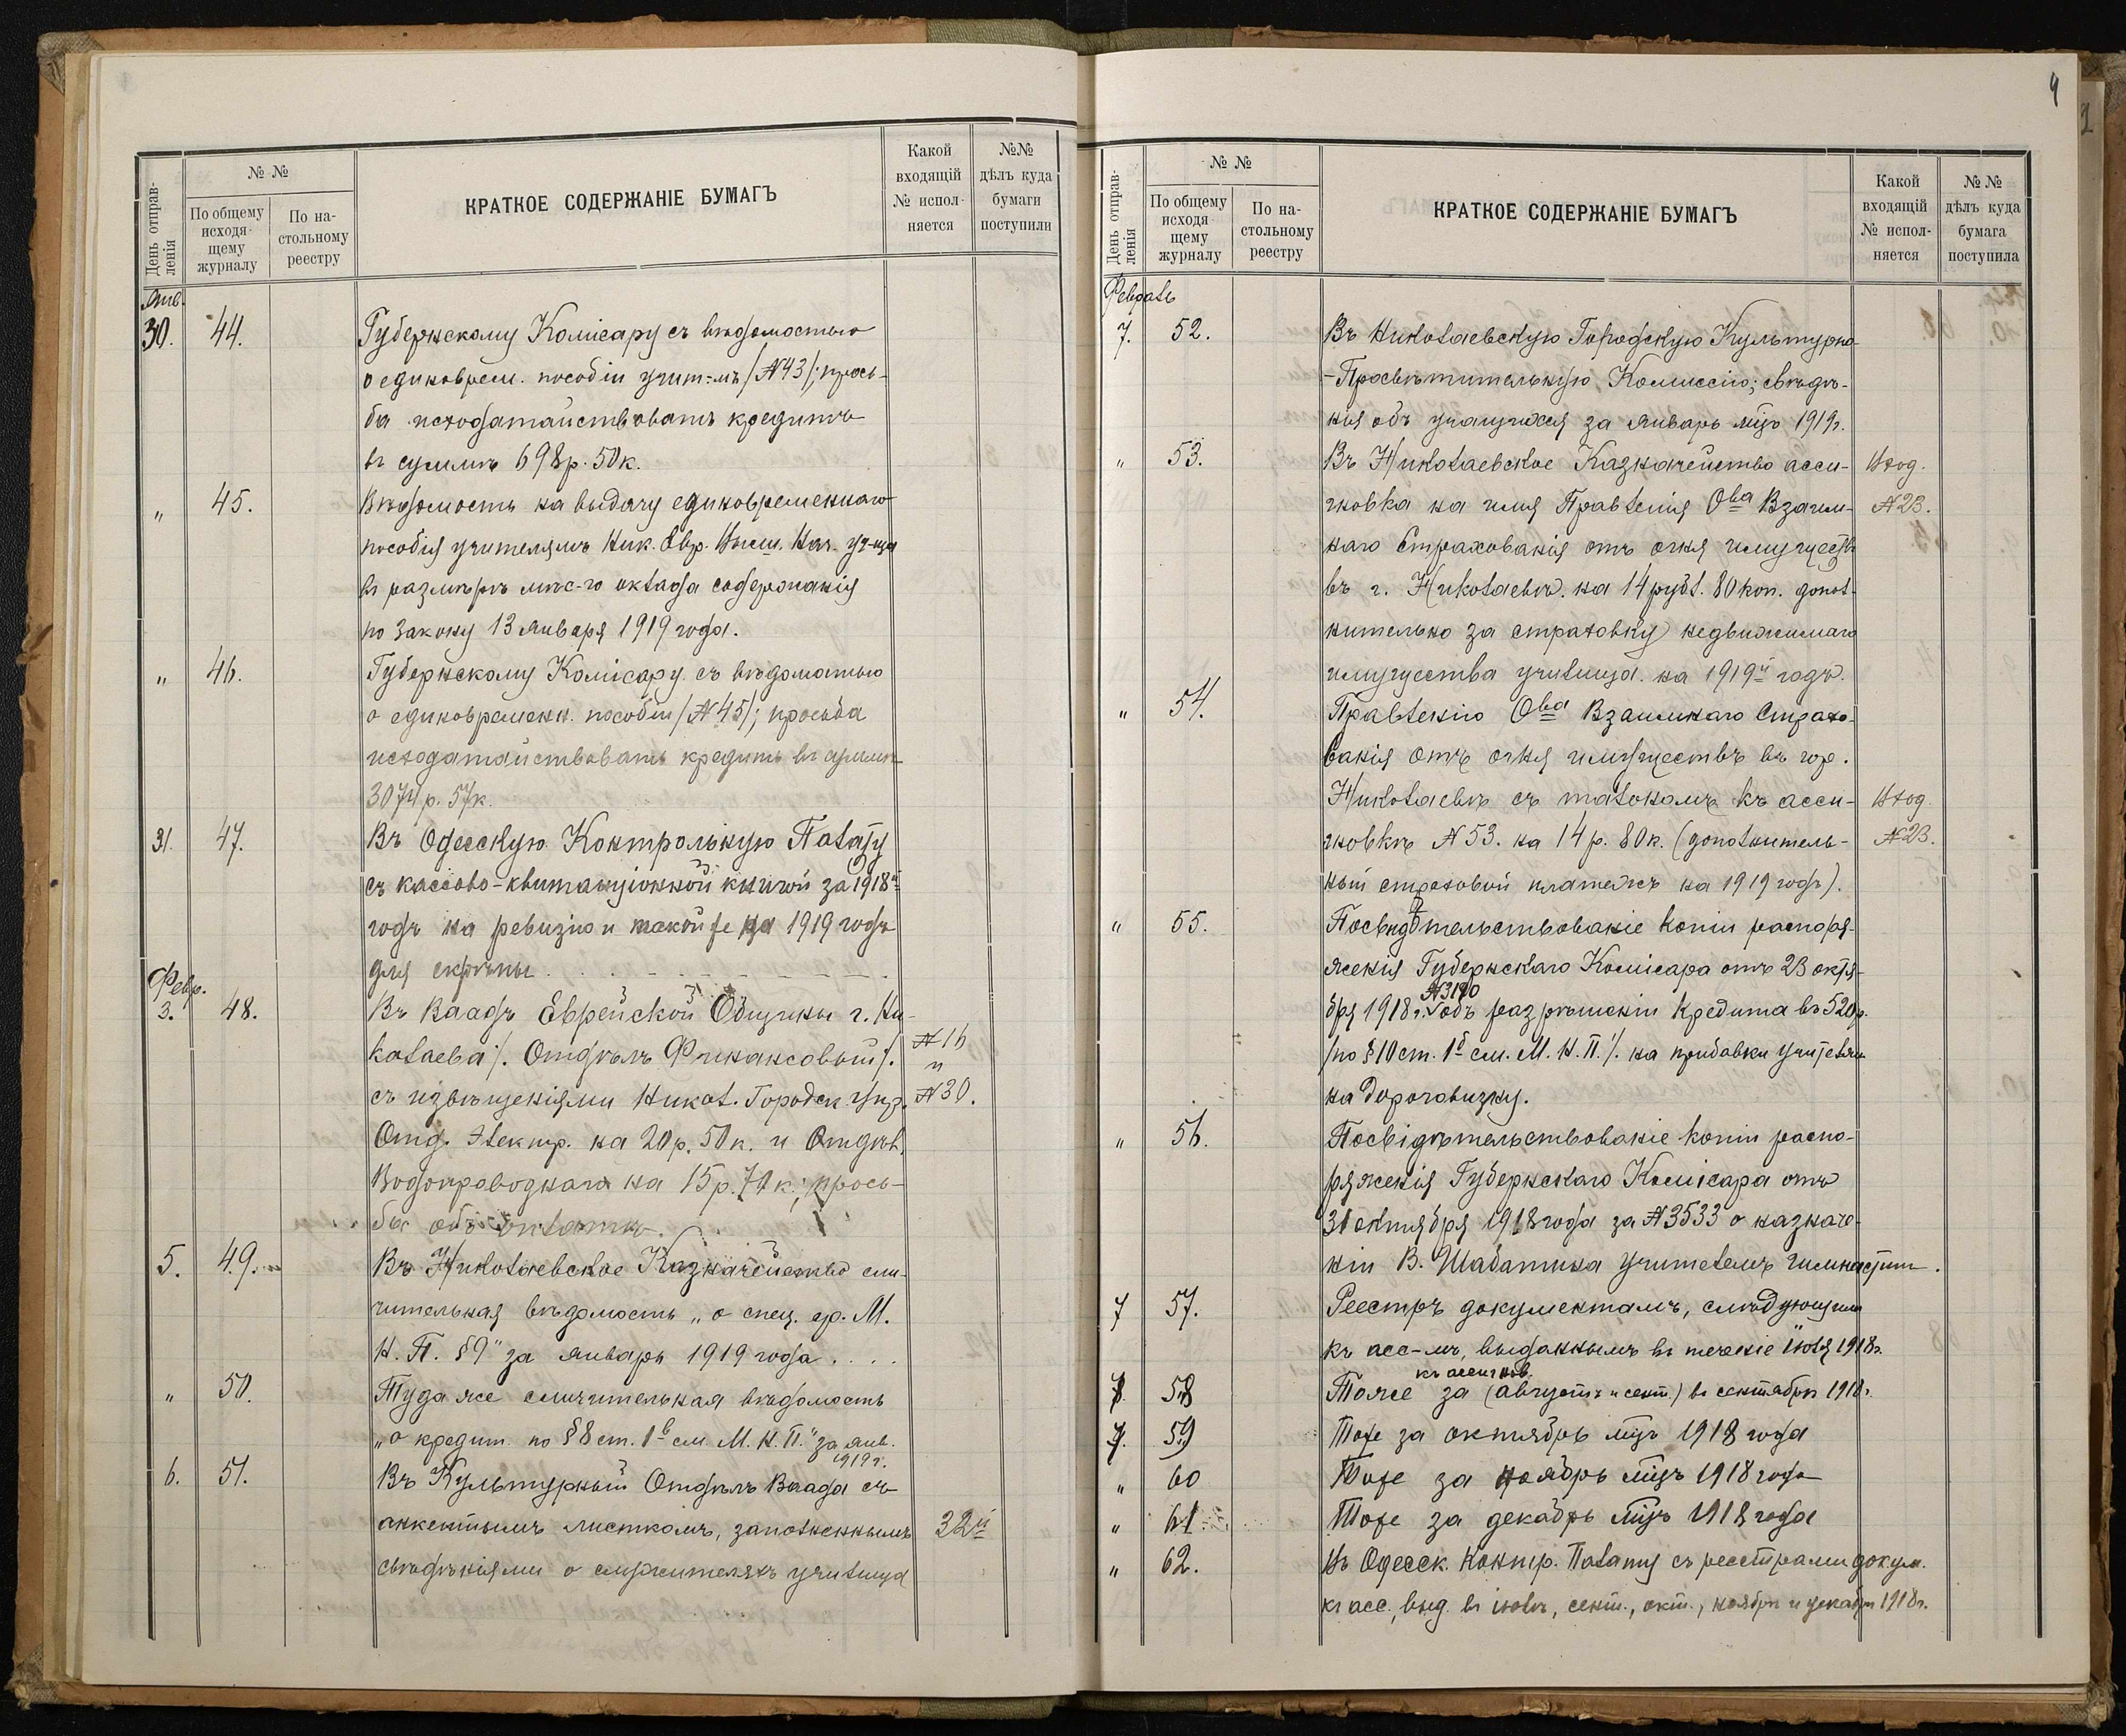 День отправ-
ленія
№ №
По общему
исходя-
щему
журналу
По на-
стольному
реестру
КРАТКОЕ СОДЕРЖАНІЕ БУМАГЪ
Какой
входящій
№ испол-
няется
№№
дѣлъ куда
бумаги
поступили
Янв.
30. 44. Губернскому Комісару съ вѣдомостью
о единоврем. пособіи учит=мъ /№43/; прось-
ба исходатайствовать кредитъ
въ суммѣ 698р. 50к.
" 45. Вѣдомость на выдачу единовременнаго
пособія учителямъ Ник. Евр. Нач. уч-ща
въ размѣрѣ мѣс-го оклада содержанія
по закону 13 января 1919 года.
" 46. Губернскому Комісару съ вѣдоматью
о единовременн. пособіи /№45/; просьба
исходатайствовать кредитъ въ суммѣ
3074р. 57к.
31. 47. Въ Одесскую Контрольную Палату
съ кассово-квитанціонной книгой за 1918й
годъ на ревизію и такой же на 1919 годъ
для скрѣпы . . .
Февр.
3. 48. Въ Ваадъ Еврейской Общины г. Ни-
колаева /. Отдѣлъ Финансовый /. №16
и
съ извѣщеніями Никол. Городск. Упр. №30.
Отд. Электр. на 20р. 50к. и Отдѣл.
Водопроводнаго на 15р. 70к.; прось-
ба объ оплатѣ.
5. 49. Въ Николаевское Казначейство сли-
чительная вѣдомость „о спец. ср. М.
Н. П. §9" за январь 1919 года . . . .
" 50. Туда же сличительная вѣдомость
„о кредит. по §8 ст. 1й см. М. Н. П." за янв.
1919 г.
6. 51. Въ Культурный Отдѣлъ Ваада съ
анкетнымъ листкомъ, заполненнымъ 22й
свѣдѣніями о служителяхъ училища
4
День отправ-
ленія
№ №
По общему
исходя-
щему
журналу
По на-
стольному
реестру
КРАТКОЕ СОДЕРЖАНІЕ БУМАГЪ
Какой
входящій
№ испол-
няется
№ №
дѣлъ куда
бумага
поступила
Февраль
7. 52. Въ Николаевскую Городскую Культурно-
-Просвѣтительную Комиссію; свѣдѣ-
нія объ учащихся за январь мцъ 1919г.
" 53. Въ Николаевское Казначейство асси- Вход.
гновка на имя Правленія Ова Взаим- №23.
наго Страхованія отъ огня имуществъ
въ г. Николаевѣ. на 14 рубл. 80 коп. допол-
нительно за страховку недвижимаго
имущества училища. на 1919й годъ.
" 54. Правленію Ова Взаимнаго Страхо-
ванія отъ огня имуществъ въ гор.
Николаевѣ съ талономъ къ асси- Вход.
гновкѣ №53. на 14р. 80к. (дополнитель- №23.
ный страховой платежъ на 1919 годъ).
" 55. Посвидѣтельствованіе копіи распоря-
женія Губернскаго Комісара отъ 23 октя-
№3190
бря 1918 г. объ разрѣшеніи кредита въ 520р.
/по §10 ст. 1й см. М. Н. П./. на прибавки учителямъ
на дороговизну.
" 56. Посвідѣтельствованіе копіи распо-
ряженія Губернскаго Комісара отъ
31 октября 1918 года за №3533 о назначе-
ніи В. Шабатина учителемъ гимнастики.
7 57. Реестръ документамъ, слѣдующимъ
къ асс-мъ, выданнымъ въ теченіе іюля 1918г.
къ ассигнов.
7. 58 Тоже за (августъ и сент.) въ сентябрѣ 1918г.
7. 59 Тоже за октябрь мцъ 1918 года
" 60 Тоже за ноябрь мцъ 1918 года
" 61 Тоже за декабрь мцъ 1918 года
" 62. Въ Одесск. Контр. Палату съ реестрами докум.
къ асс., выд. въ іюлѣ, сент., окт., ноябрѣ и декабрѣ 1918г.